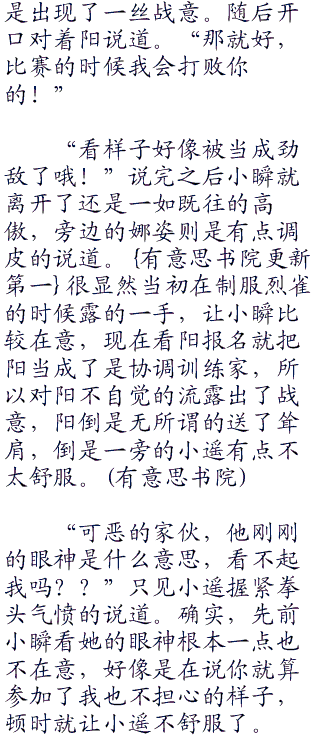 是出现了一丝战意。随后开
口对着阳说道。“那就好，
比赛的时候我会打败你
的！”
“看样子好像被当成劲
敌了哦！”说完之后小瞬就
离开了还是一如既往的高
傲，旁边的娜姿则是有点调
皮的说道。{有意思书院更新
第一}很显然当初在制服烈雀
的时候露的一手，让小瞬比
较在意，现在看阳报名就把
阳当成了是协调训练家，所
以对阳不自觉的流露出了战
意，阳倒是无所谓的送了耸
肩，倒是一旁的小遥有点不
太舒服。(有意思书院)
“可恶的家伙，他刚刚
的眼神是什么意思，看不起
我吗？？”只见小遥握紧拳
头气愤的说道。确实，先前
小瞬看她的眼神根本一点也
不在意，好像是在说你就算
参加了我也不担心的样子，
顿时就让小遥不舒服了。